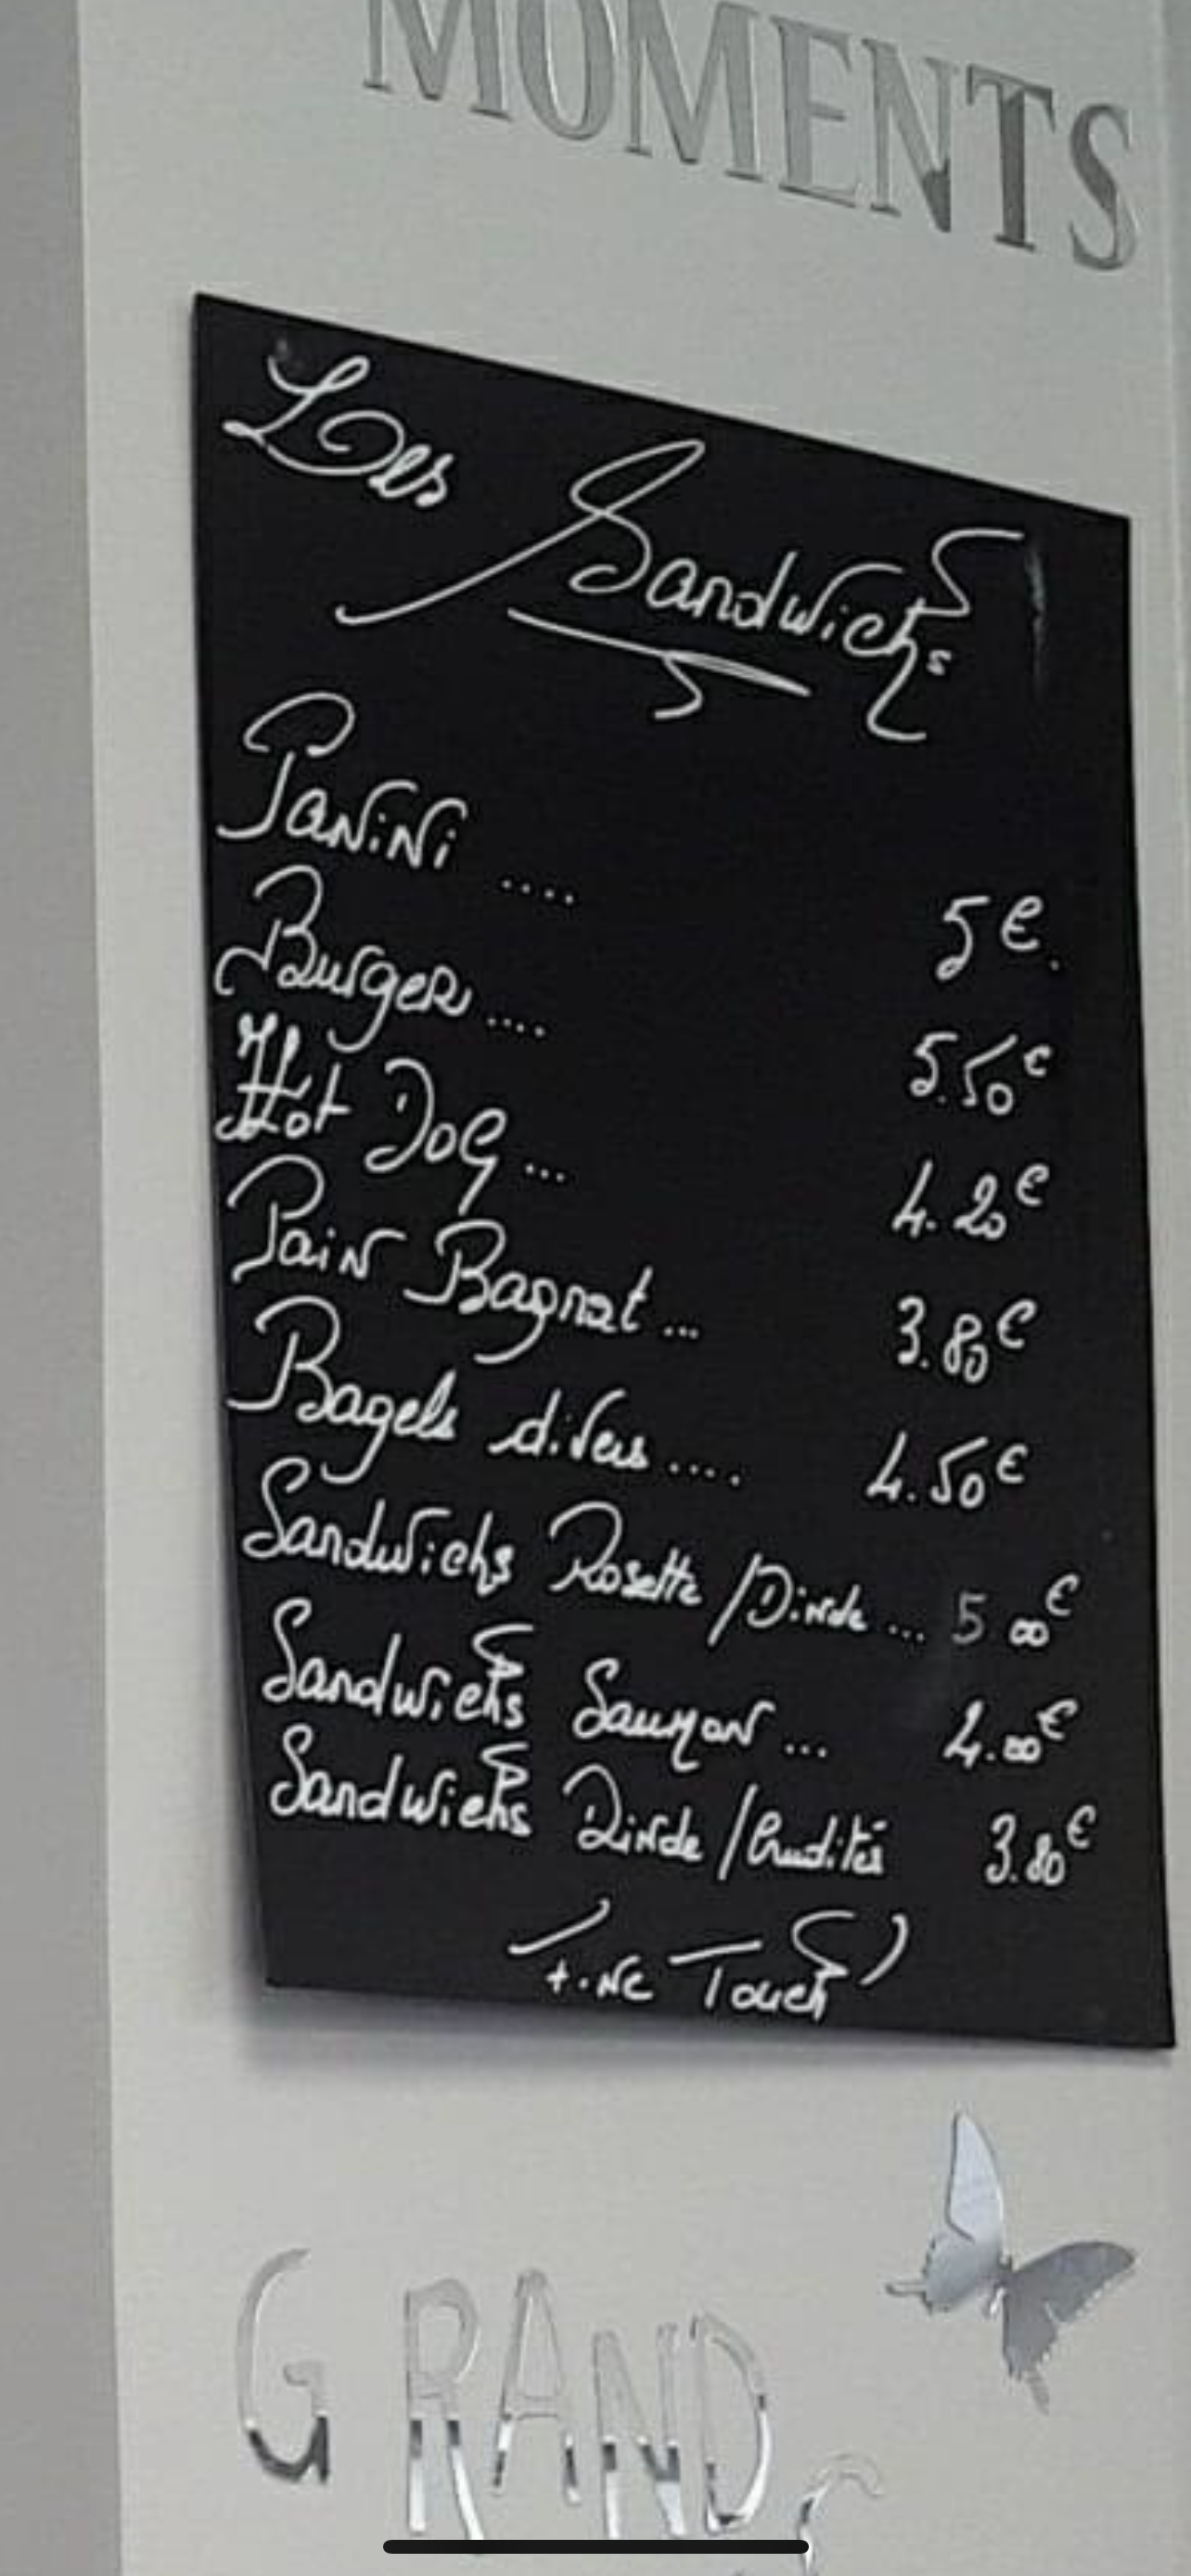 MOMENTS
Les Sandwichs
Panini .... 5€.
Burger .... 5.50€
Hot Dog ... 4.20€
Pain Bagnat ... 3.80€
Bagels divers .... 4.50€
Sandwichs Rosette/Dinde ... 5 00€
Sandwichs Saumon ... 4.00€
Sandwichs Dinde/Crudités 3.80€
Touch
GRAND